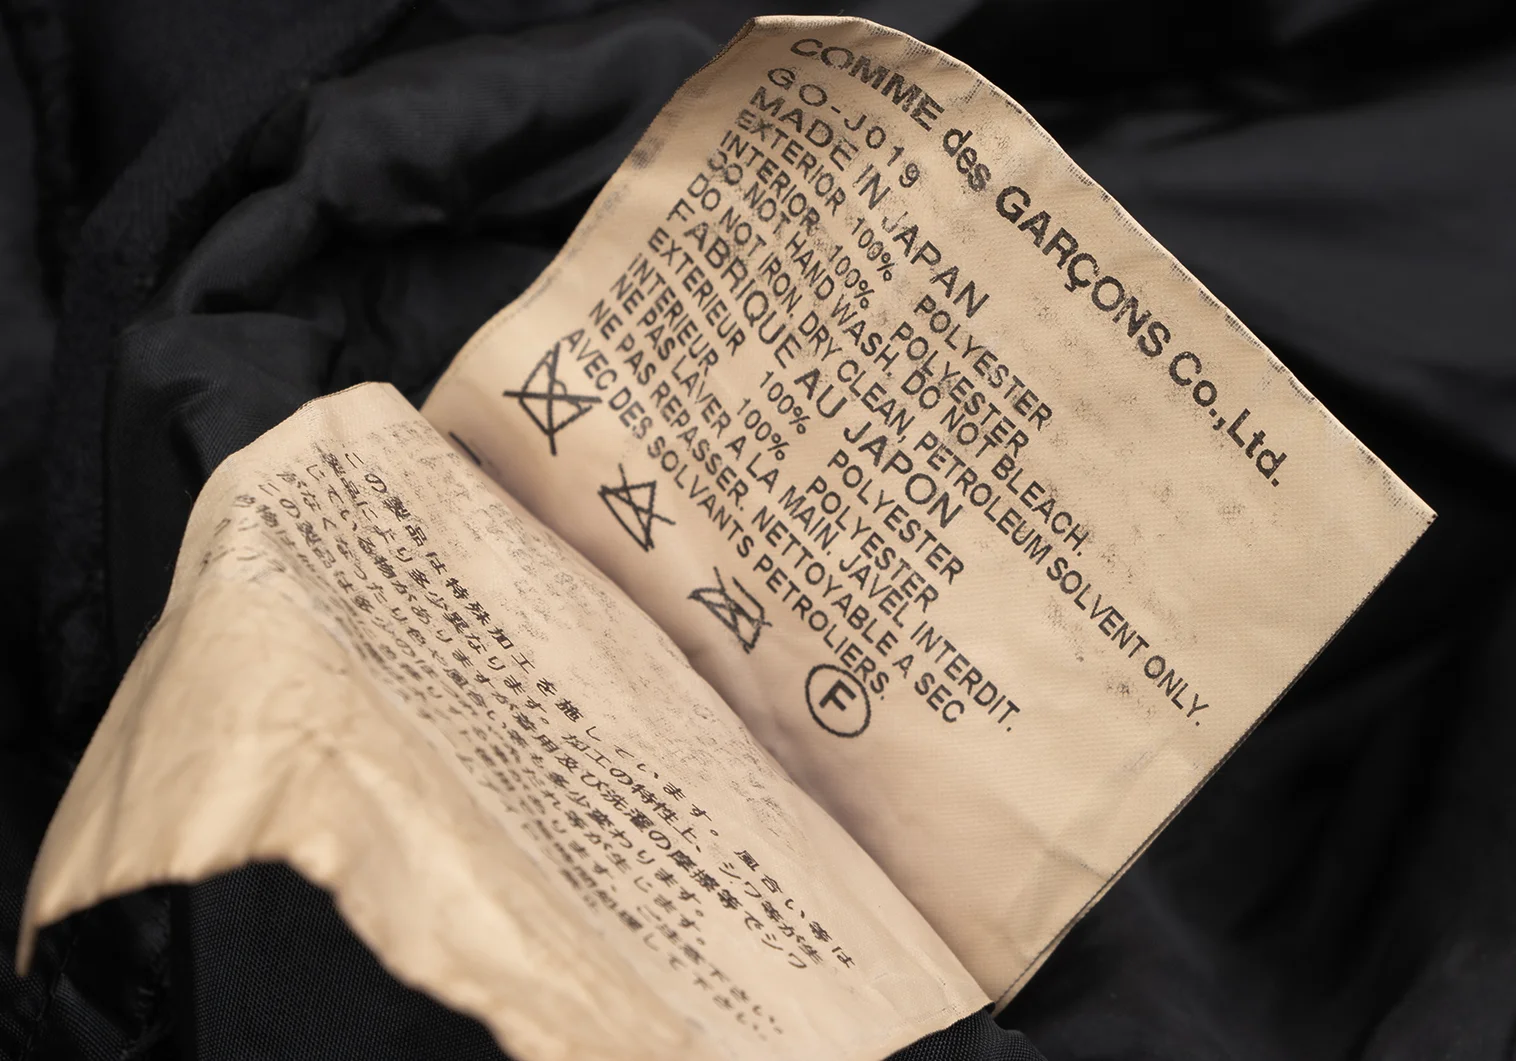 COMME des GARÇONS Co.,Ltd.
GO-J019
MADE IN JAPAN
EXTERIOR 100% POLYESTER
INTERIOR 100% POLYESTER
DO NOT HAND WASH. DO NOT BLEACH.
DO NOT IRON. DRY CLEAN, PETROLEUM SOLVENT ONLY.
FABRIQUE AU JAPON
EXTERIEUR 100% POLYESTER
INTERIEUR 100% POLYESTER
NE PAS LAVER A LA MAIN. JAVEL INTERDIT.
NE PAS REPASSER. NETTOYABLE A SEC
AVEC DES SOLVANTS PETROLIERS.
F
この製品は特殊加工を施しています。風合い等は
製品により多少異なります。加工の特性上、シワ等が生
じている物があります。が着用及び洗濯の摩擦等でシワ
がなくなったり色や風合い等も多少変わります。
この製品は多少の